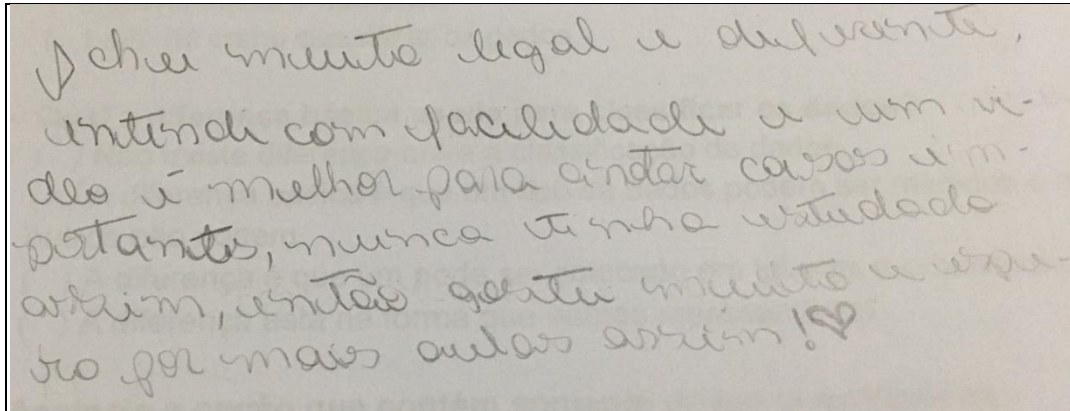 Achei muito legal e diferente,
entendi com facilidade e um ví-
deo é melhor para anotar coisas im-
portantes, nunca tinha estudado
assim, então gostei muito e espe-
ro por mais aulas assim!♡